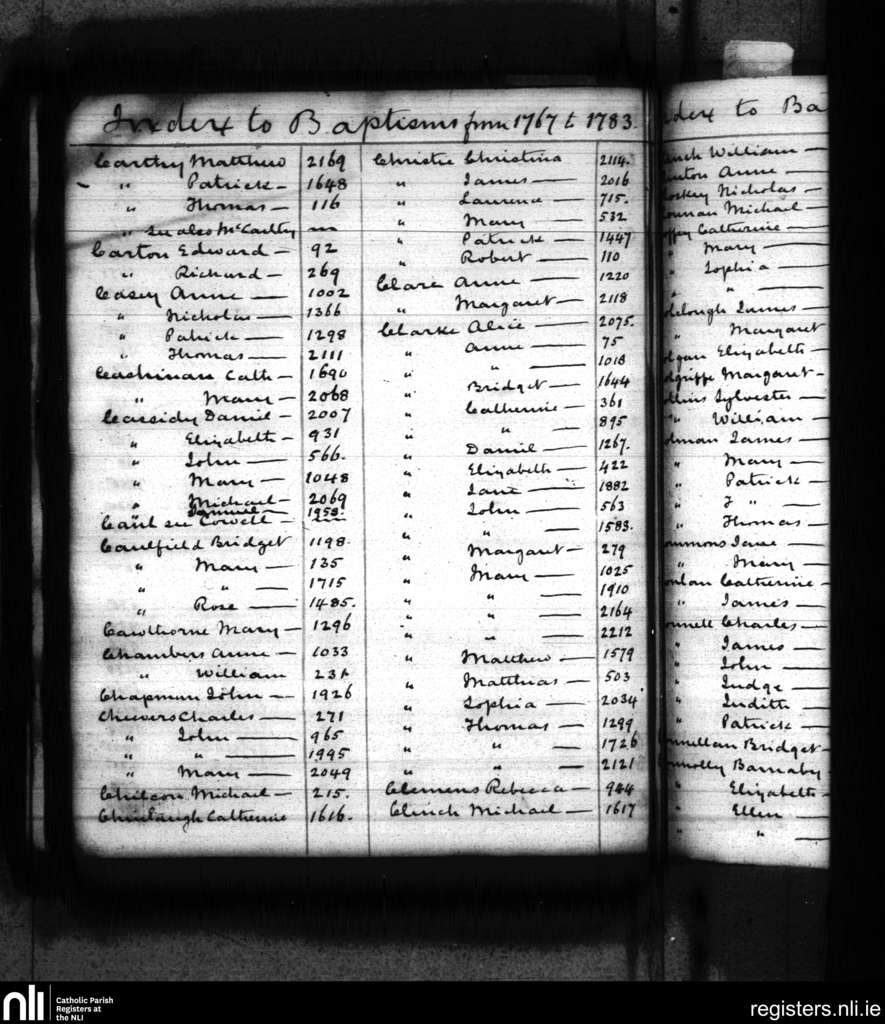 Index to Baptisms from 1767 to 1783.
Carthy Matthew 2169
" Patrick — 1648
" Thomas — 116
" see also McCarthy —
Carton Edward — 92
" Richard — 269
Casey Anne — 1002
" Nicholas — 1366
" Patrick — 1298
" Thomas — 2111
Cashinan Cath — 1690
" Mary — 2068
Cassidy Daniel — 2007
" Elizabeth — 931
" John — 566.
" Mary — 1048
" Michael — 2069
" Samuel — 1958.
Caul see Cowell —
Caulfield Bridget 1198.
" Mary — 135
" " — 1715
" Rose — 1485.
Cawthorne Mary — 1296
Chambers Anne — 1033
" William 231
Chapman John — 1926
Cheevers Charles — 271
" John — 965
" " — 1995
" Mary — 2049
Chilcon Michael — 215.
Catherine 1616.
Christie Christina 2114.
" James — 2016
" Laurence — 715.
" Mary — 532
" Patrick — 1447
" Robert — 110
Clare Anne — 1220
" Margaret — 2118
Clarke Alice — 2075.
" Anne — 75
" " — 1018
" Bridget — 1644
" Catherine — 361
" " — 895
" Daniel — 1267.
" Elizabeth — 422
" Jane — 1882
" John — 563
" " — 1583.
" Margaret — 279
" Mary — 1025
" " — 1910
" " — 2164
" " — 2212
" Matthew — 1579
" Matthias — 503
" Sophia — 2034
" Thomas — 1299
" " — 1726
" " — 2121
Clemens Rebecca — 944
Clinch Michael — 1617
ndex to Ba
inch William —
inton Anne —
oskey Nicholas —
ounan Michael —
ffey Catherine —
" Mary —
" Sophia —
" " —
olclough James —
" Margaret
olgan Elizabeth —
olgriffe Margaret —
ollins Sylvester —
" William —
olman James —
" Mary —
" Patrick —
" J " —
" Thomas —
ommons Jane —
" Mary —
onlan Catherine —
" James —
onnell Charles —
" James —
" John —
" Judge —
" Judith —
" Patrick —
onnellan Bridget —
onnolly Barnaby
" Elizabeth —
" Ellen —
" " —
nli
Catholic Parish
Registers at
the NLI
registers.nli.ie